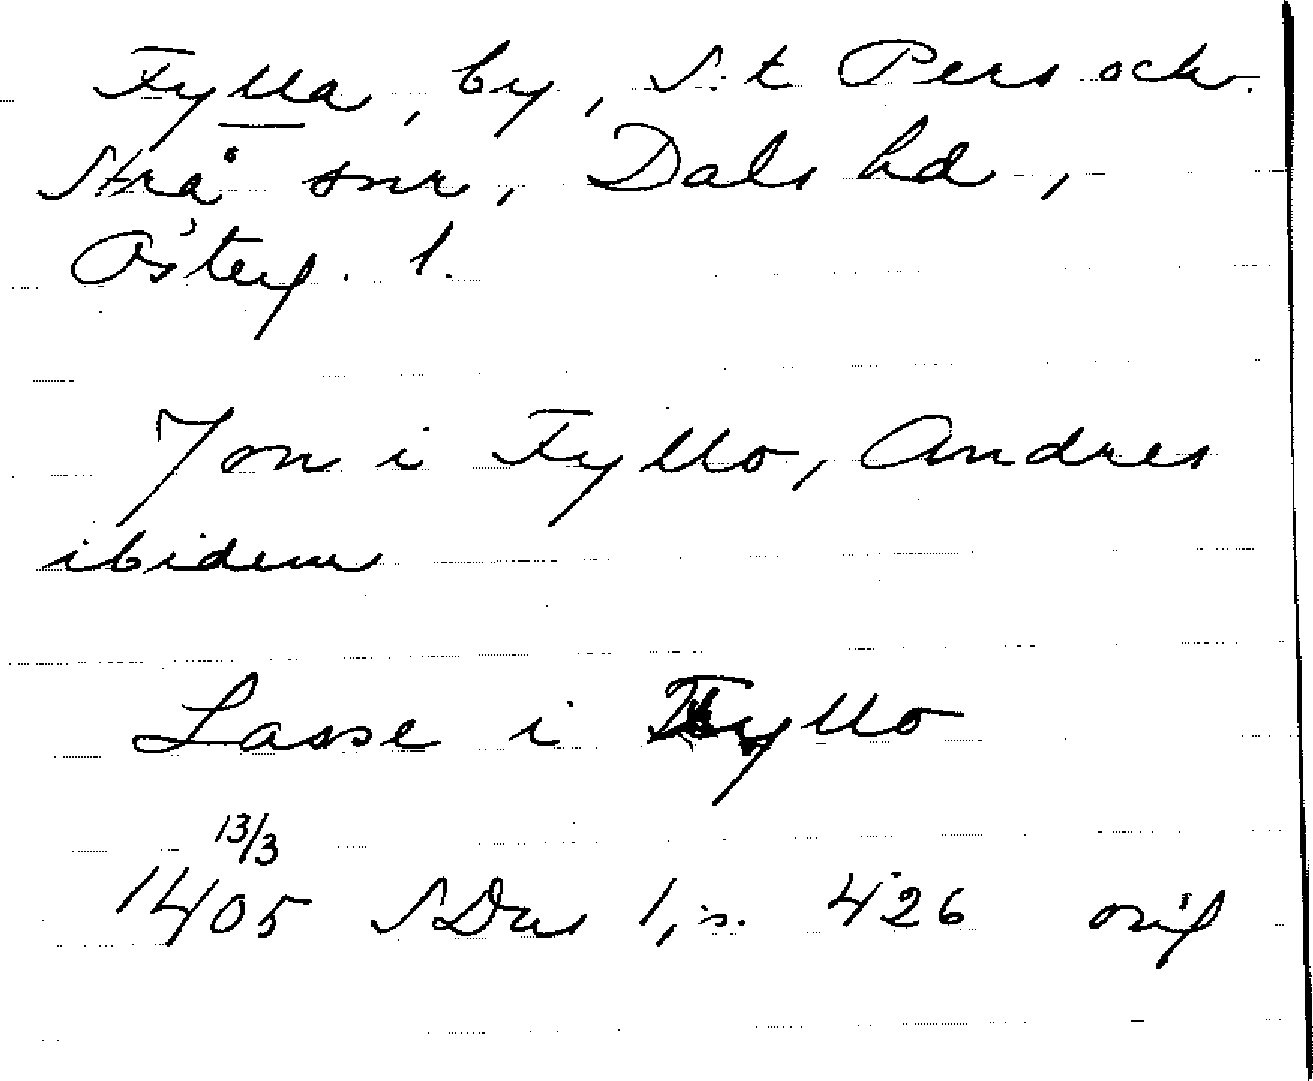 Fylla, by, S:t Pers och
Strå snr, Dals hd,
Österg. l.
Jon i Fyllo, Andres
ibidem
Lasse i Fyllo
13/3
1405 SDns 1, s. 426 orig